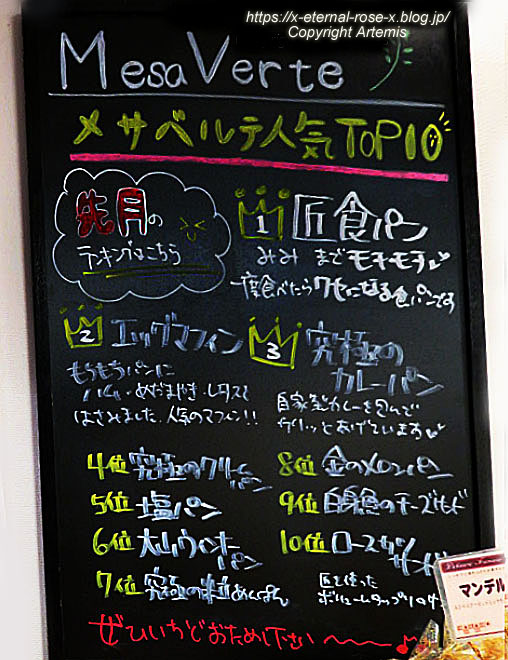 https://x-eternal-rose-x.blog.jp/
Copyright Artemis
Mesa Verte
メサベルテ人気TOP10
先月の
ランキングはこちら
1 匠食パン
みみまでモチモチ
一度食べたらクセになる食パンです
2 エッグマフィン
もちもちパンに
ハム・めだまやき・レタスを
はさみました。人気のマフィン!!
3 究極の
カレーパン
自家製カレーを包んで
カリッとあげています
4位 究極のクリームパン
5位 塩パン
6位 大山ウィンナーパン
7位 究極の粒あんぱん
8位 金のメロンパン
9位 自家製のチーズ
10位 ロースカツサンド
匠を使った
ボリュームたっぷり
ぜひいちどおためし下さい〜♪
マンデル